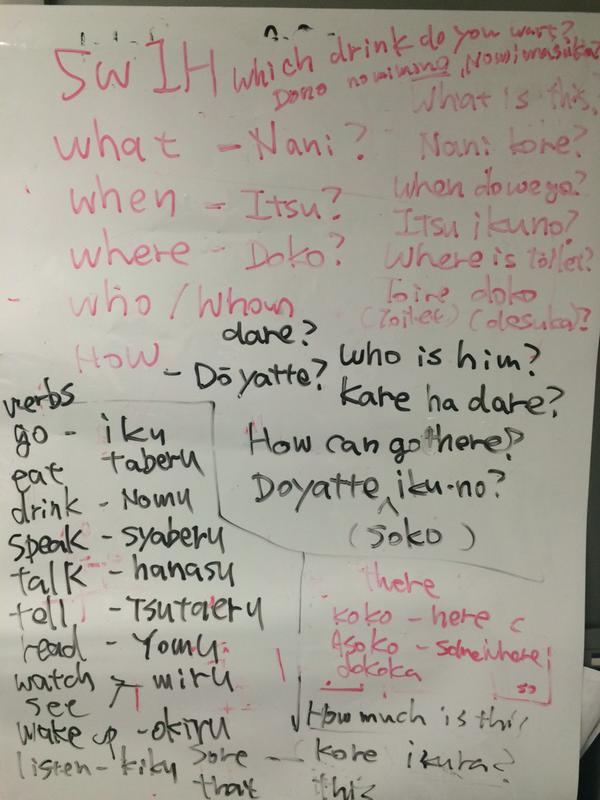 5W1H which drink do you want?
Dono nomimono, Nomimasuka?
What is this,
what - Nani? Nani kore?
when - Itsu? When do we go?
Itsu ikuno?
where - Doko? Where is toilet?
who / whom Toire doko
(Toilet) (desuka)?
dare?
HOW - Dōyatte? who is him?
kare ha dare?
How can go there?
Doyatte iku-no?
(soko)
verbs
go - iku
eat taberu
drink - Nomu
speak - syaberu
talk - hanasu
tell - Tsutaeru
read - Yomu
watch
see - miru
wake up - okiru
listen - kiku
there
koko - here
Asoko - somewhere
dokoka
How much is this
Sore - kore ikura?
that this